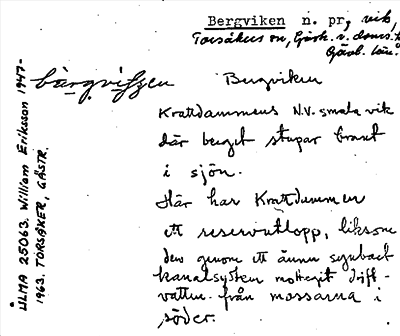 Bergviken n. pr., vik,
Torsåkers sn, Gästr. v. doms.
Gävleb. län.
bärgvikjen Bergviken
Krattdammens N.V. smala vik
där berget stupar brant
i sjön.
Här har Krattdammen
ett reservutlopp, liksom
den genom ett ännu synbart
kanalsystem mottagit drift-
vatten från mossarna i
söder.
ULMA 25063. William Eriksson 1947-
1963. TORSÅKER, GÄSTR.